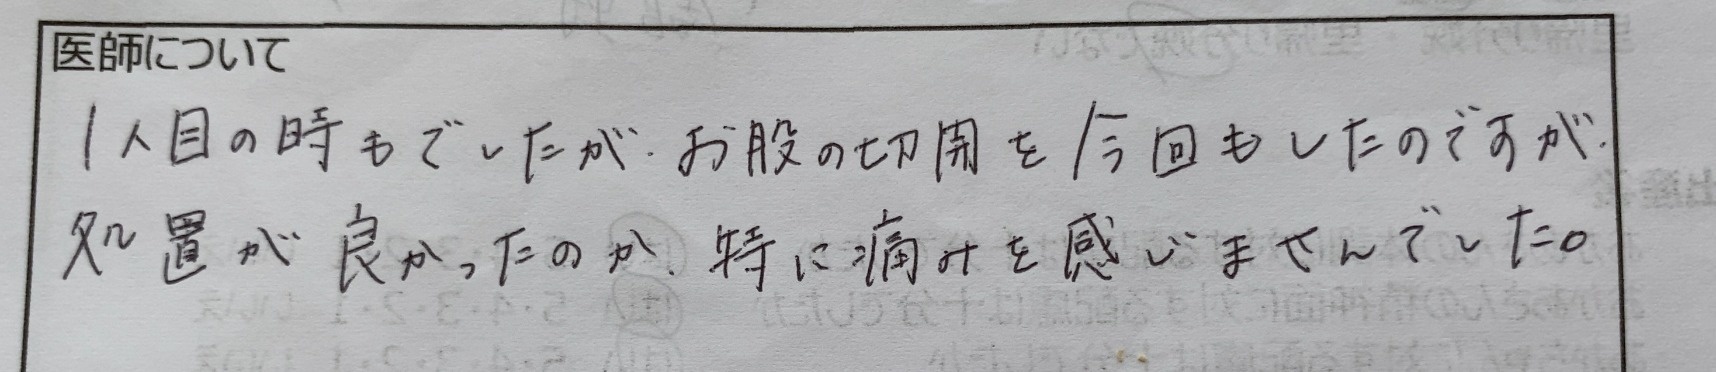 医師について
1人目の時もでしたが、お股の切開を今回もしたのですが、
処置が良かったのか、特に痛みを感じませんでした。